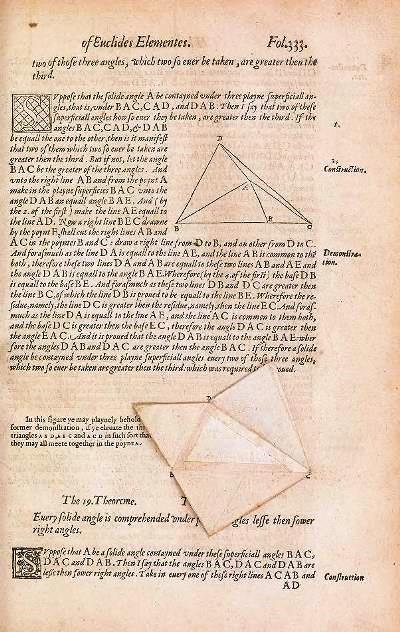 of Euclides Elementes. Fol.333.
two of those three angles, which two so euer be taken, are greater then the
third.
Vppose that the solide angle A be contayned vnder three playne superficiall an-
gles, that is, vnder BAC, CAD, and DAB. Then I say that two of these
superficiall angles how so euer they be taken, are greater then the third. If the
angles BAC, CAD, & DAB
be equall the one to the other, then is it manifest
that two of them which two so euer be taken are
greater then the third. But if not, let the angle
BAC be the greater of the three angles. And
vnto the right line AB and from the poynt A
make in the playne superficies BAC vnto the
angle DAB an equall angle BAE. And (by
the 2. of the first) make the line AE equall to
the line AD. Now a right line BEC drawne
by the poynt E, shall cut the right lines AB and
AC in the poyntes B and C: draw a right line from D to B, and an other from D to C.
And forasmuch as the line DA is equall to the line AE, and the line AB is common to the
both, therefore these two lines DA and AB are equall to these two lines AB and AE and
the angle DAB is equall to the angle BAE. Wherefore (by the 4. of the first) the base DB
is equall to the base BE. And forasmuch as these two lines DB and DC are greater then
the line BC, of which the line DB is proued to be equall to the line BE. Wherefore the re-
sidue, namely, the line DC is greater then the residue, namely, then the line EC. And foras-
much as the line DA is equall to the line AE, and the line AC is common to them both,
and the base DC is greater then the base EC, therefore the angle DAC is greater then
the angle EAC. And it is proued that the angle DAB is equall to the angle BAE: wher
fore the angles DAB and DAC are greater then the angle BAC. If therefore a solide
angle be contayned vnder three playne superficiall angles euery two of those three angles,
which two so euer be taken are greater then the third: which was required to
1.
2.
Construction.
Demonstra-
tion.
D
A
B
E
C
In this figure ye may playnely behold
former demonstration, if ye eleuate the
triangles ABD, ABC and ACD in such sort that
they may all meete together in the poynt A.
D
B
C
The 19. Theoreme.
Euery solide angle is comprehended vnder gles lesse then fower
right angles.
Vppose that A be a solide angle contayned vnder these superficiall angles BAC,
DAC and DAB. Then I say that the angles BAC, DAC and DAB are
lesse then fower right angles. Take in euery one of these right lines ACAB and
AD
Construction